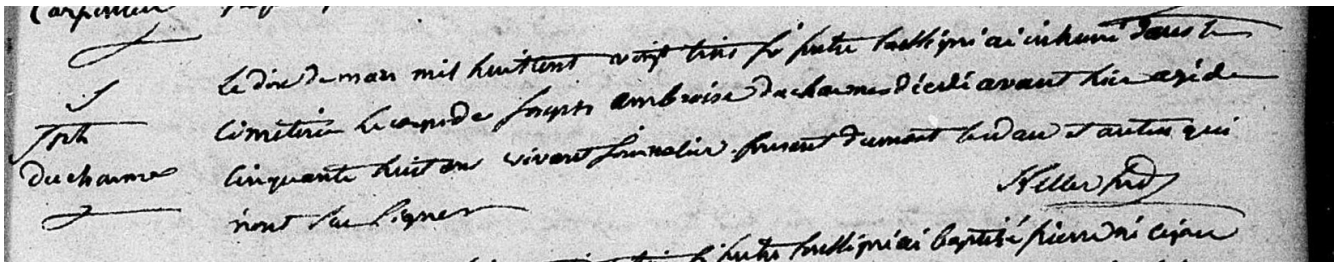 Carpentier
S
Jph
ducharme
le dix de mars mil huit cent vingt trois je pretre soussigné ai inhumé dans le
cimetiere le corps de joseph ambroise ducharme décédé avant hier agé de
cinquante huit ans vivant journalier. present dumont bedau et autres qui
n'ont su signer
Keller ptre
je pretre soussigné ai baptisé pierre né ce jour